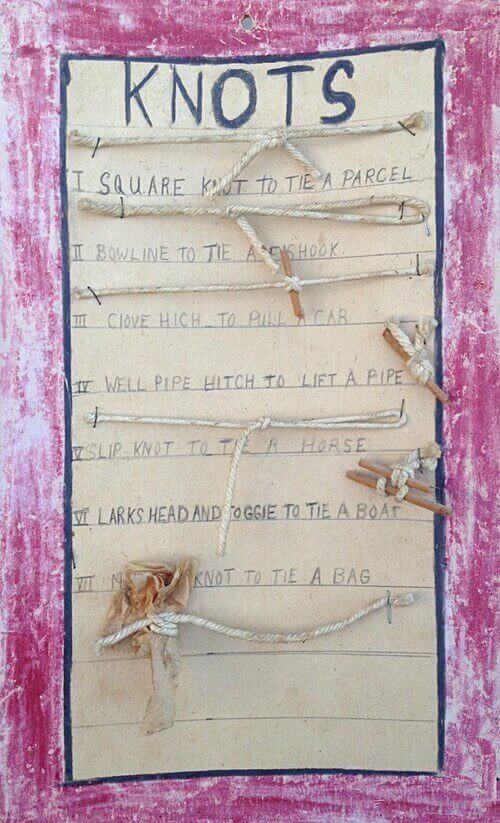 KNOTS
I SQUARE KNOT TO TIE A PARCEL
II BOWLINE TO TIE A
III CLOVE HICH TO PULL A CAR
IV WELL PIPE HITCH TO LIFT A PIPE
V SLIP KNOT TO TIE A HORSE
VI LARKS HEAD AND TOGGIE TO TIE A BOAT
VII KNOT TO TIE A BAG